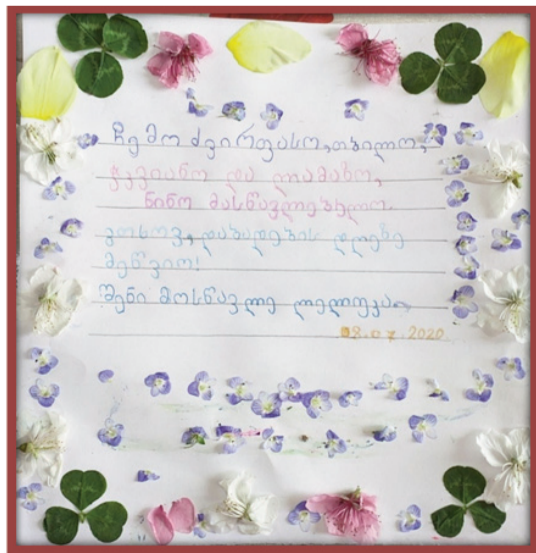 ჩემო ძვირფასო, თბილო,
ჭკვიანო და ლამაზო,
ნინო მასწავლებელო.
გთხოვ, დაბადების დღეზე
მეწვიო!
შენი მოსწავლე ლელუკა.
08.07.2020